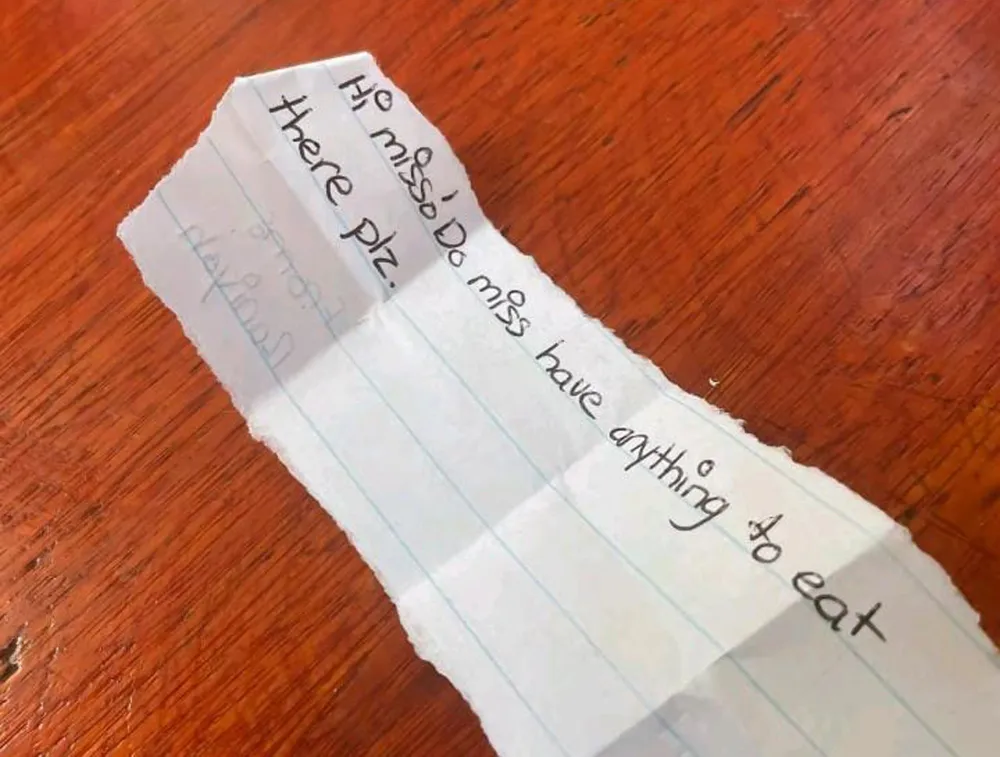 Hi miss Do miss have anything to eat
there plz.